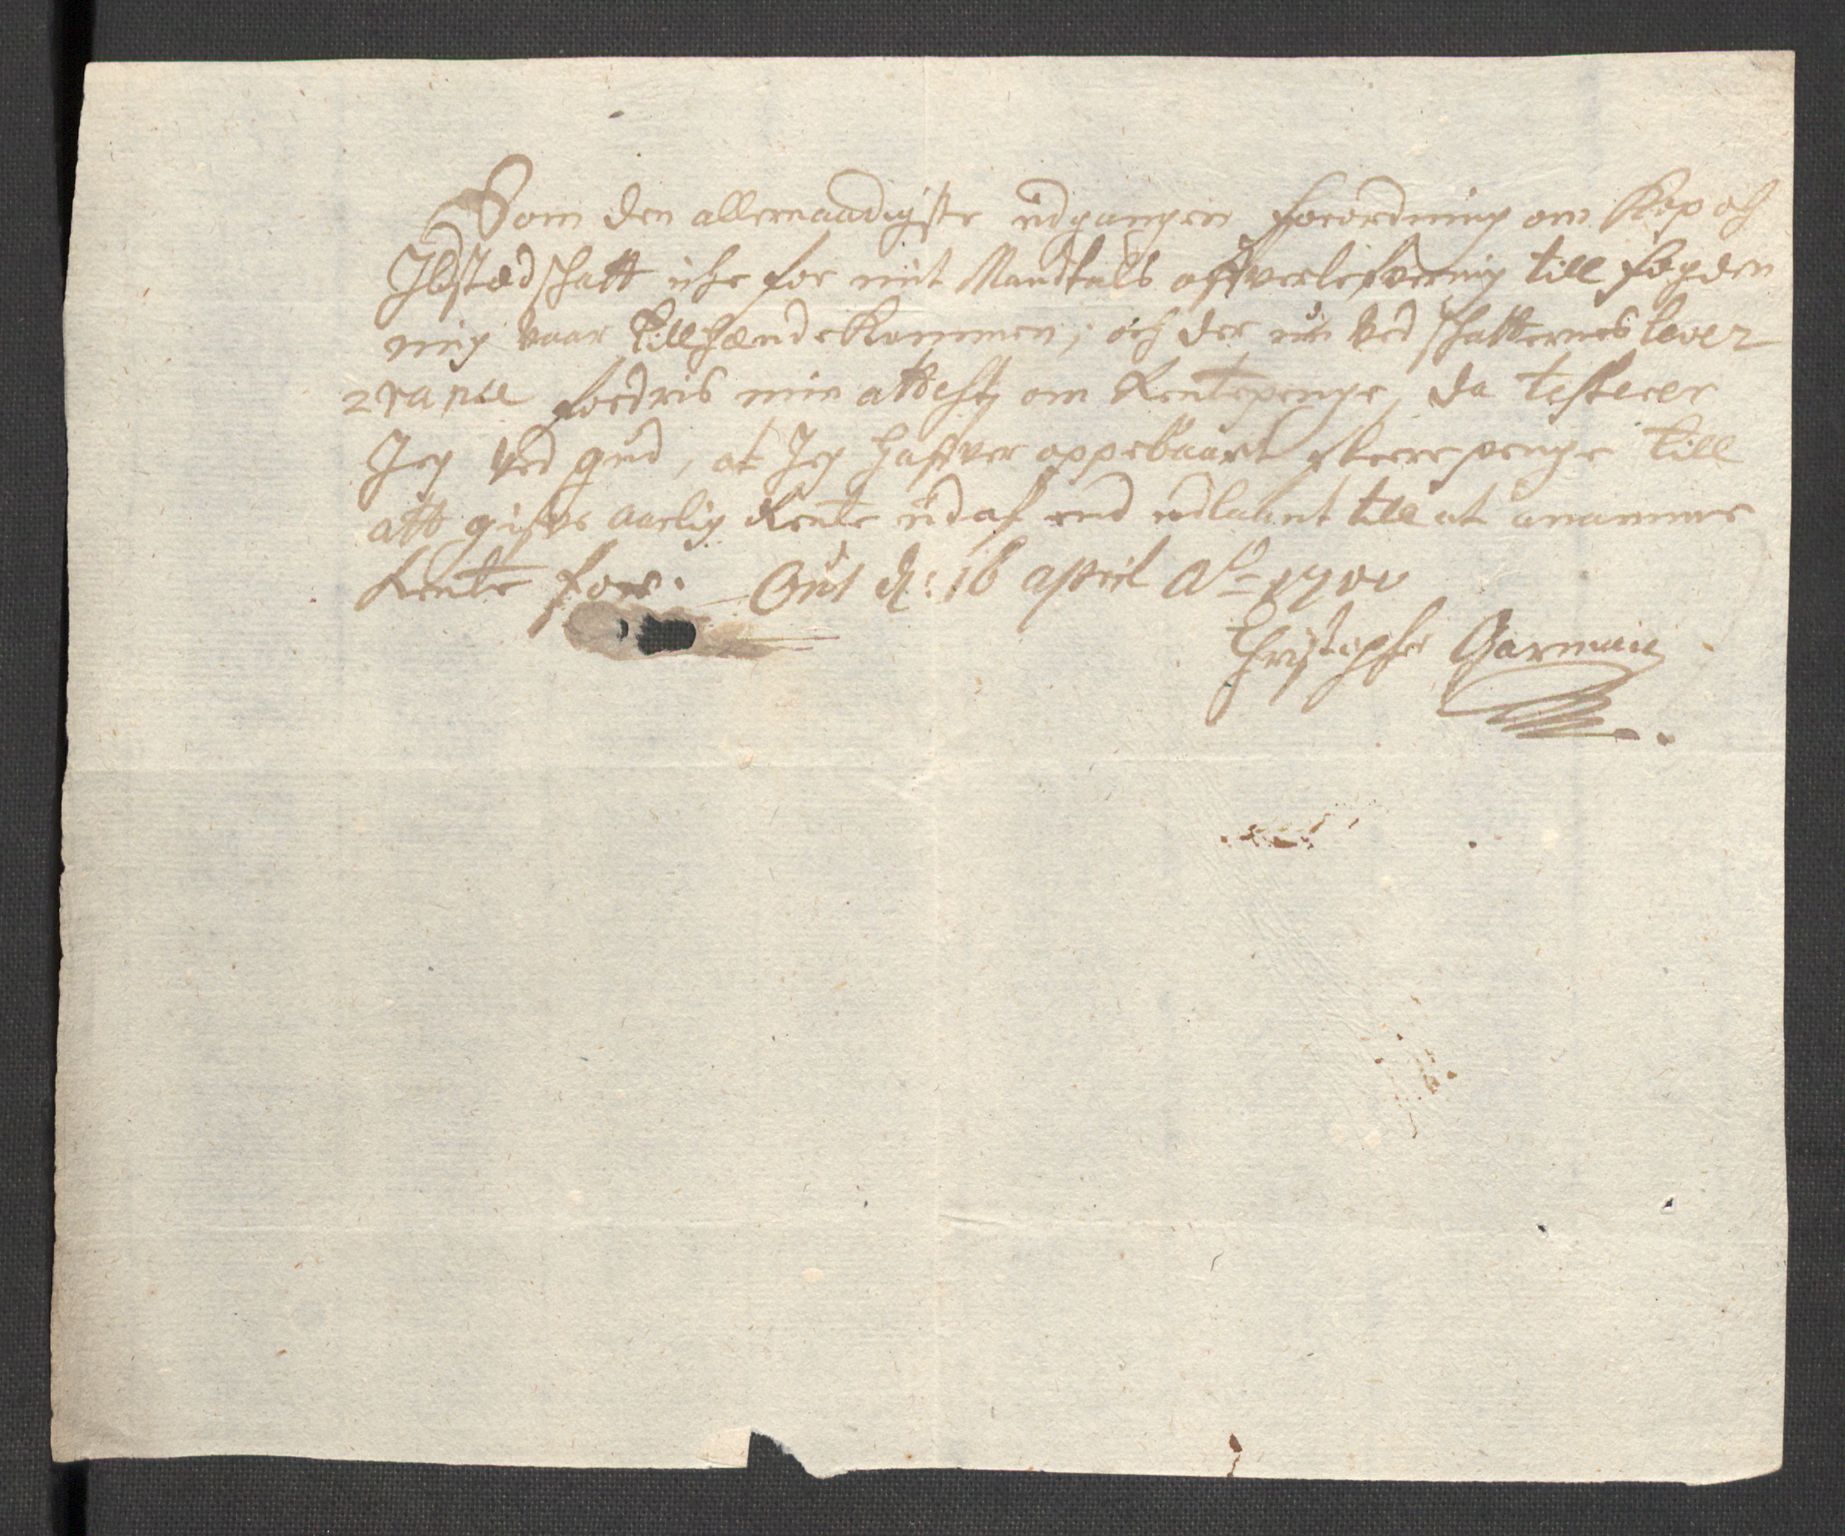 Som den allernaadigste üdgangen forordning om Kop och
Ildstædschatt iche for mit Mandtals offverlefvering till fogden
mig vaar tillhændekommen, och der nu ved schatternes lever
rance fordris min attest om Rentepenge, da testerer
Jeg ved gud, at Jeg haffver oppebaaret penge till
att gifve aarlig Rente üdaf end udlahnt till at anamme
Rente for. d: 16 april Ao 1700
Christopher Garman